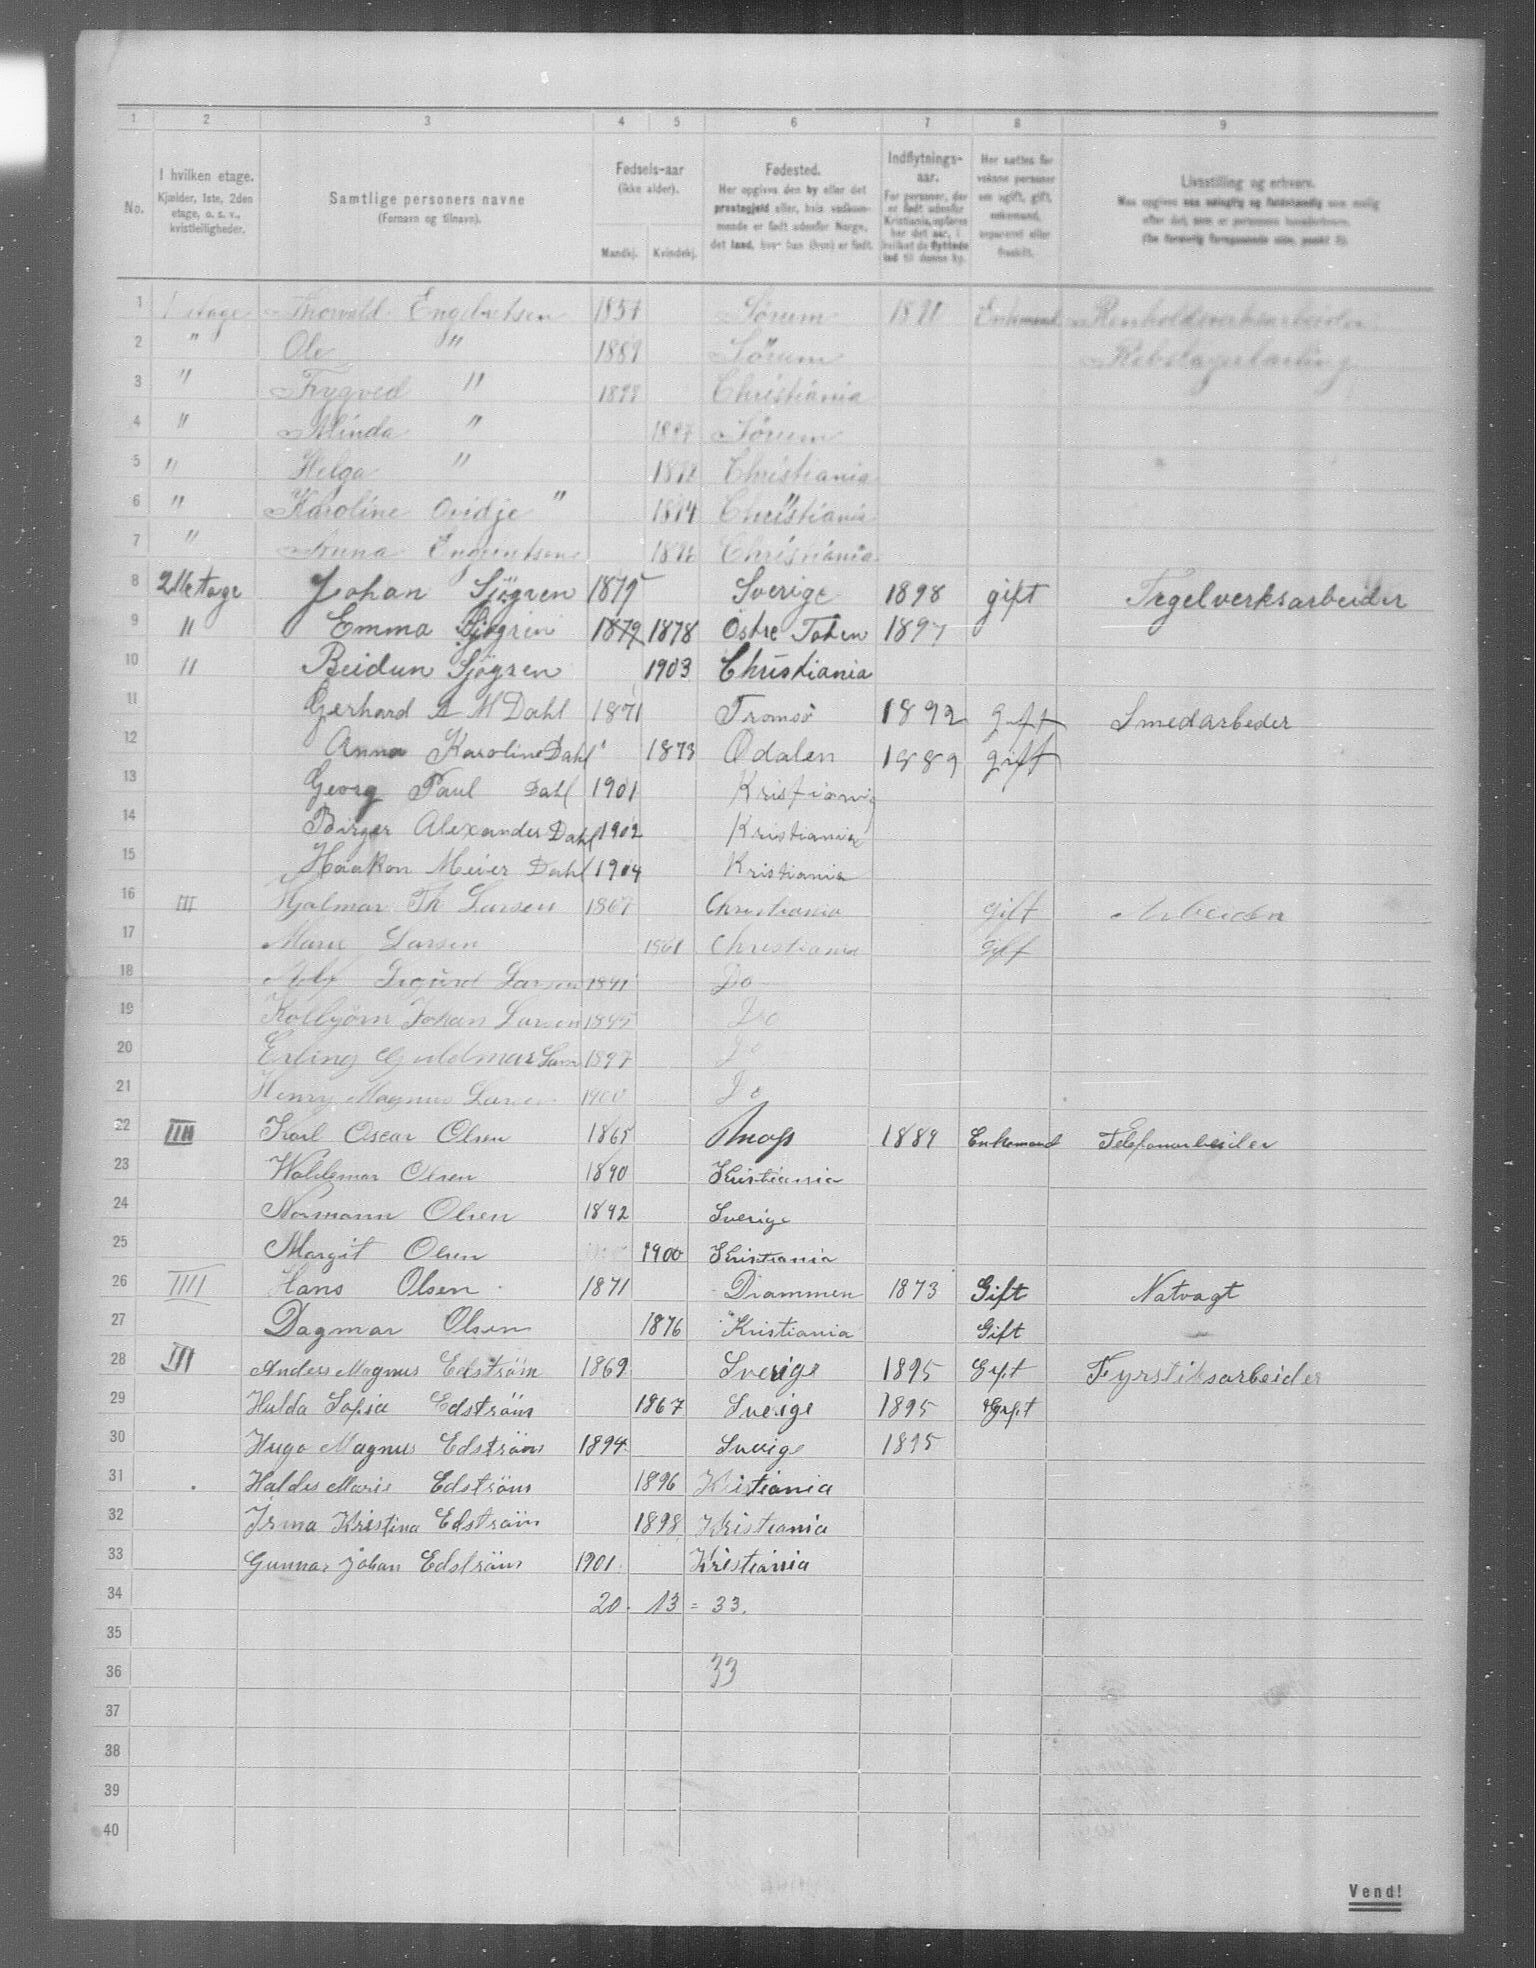 1 2 3 4 5 6 7 8 9
No.
I hvilken etage.
Kjælder, 1ste, 2den
etage, o. s. v.,
kvistleiligheder.
Samtlige personers navne
(Fornavn og tilnavn).
Fødsels-aar
(ikke alder).
Mandkj. Kvindekj.
Fødested.
Her opgives den by eller det
prestegjeld eller, hvis vedkom-
mende er født udenfor Norge,
det land, hvor han (hun) er født.
Indflytnings-
aar.
For personer, der
er født udenfor
Kristiania, opføres
her det aar, i
hvilket de flyttede
ind til denne by.
Her sættes for
voksne personer
om ugift, gift,
enkemand,
separeret eller
fraskilt.
Livsstilling og erhverv.
1 1 etage Thorvald Engebretsen 1857 Sørum Enkemand Renholdsverksarbeider
2 " Ole " Sørum
3 " Trygved " Christiania
4 " " Sørum
5 " Helga " Christiania
6 " Karoline " 1894 Christiania
7 " Christiania
8 2 etage Johan Sjögren 1875 Sverige 1898 gift Tegelverksarbeider
9 " Emma Sjögren 1879 1878 Östre Toten 1897
10 " Reidun Sjögren 1903 Christiania
11 Gerhard A M Dahl 1871 Tromsö 1892 gift Smedarbeder
12 Anna Karoline Dahl 1873 Odalen 1889 gift
13 Georg Paul Dahl 1901 Kristiania
14 Birger Alexander Dahl 1902 Kristiania
15 Haakon Meier Dahl 1904 Kristiania
16 III Hjalmar Th Larsen 1867 Christiania Gift Arbeider
17 Marie Larsen Christiania Gift
18 Sigurd Larsen 1891 Do
19 Kolbjörn Johan Larsen 1895 Do
20 Erling Guldmar Larsen 1897 Do
21 Henry Magnus Larsen 1900 Do
22 IIII Karl Oscar Olsen 1865 Moss 1889 Enkemand Telefonarbeider
23 Waldemar Olsen 1890 Kristiania
24 Normann Olsen 1892 Sverige
25 Margit Olsen 1900 Kristiania
26 IIII Hans Olsen 1871 Drammen 1873 Gift Natvagt
27 Dagmar Olsen 1876 Kristiania Gift
28 III Anders Magnus Edström 1869 Sverige 1895 Gift Fyrstiksarbeider
29 Hulda Sofia Edström 1867 Sverige 1895 Gift
30 Hugo Magnus Edström 1894 Sverige 1895
31 Haldis Marie Edström 1896 Kristiania
32 Irma Kristina Edström 1898 Kristiania
33 Gunnar Johan Edström 1901 Kristiania
34 20. 13 = 33.
35
36 33
37
38
39
40
Vend!